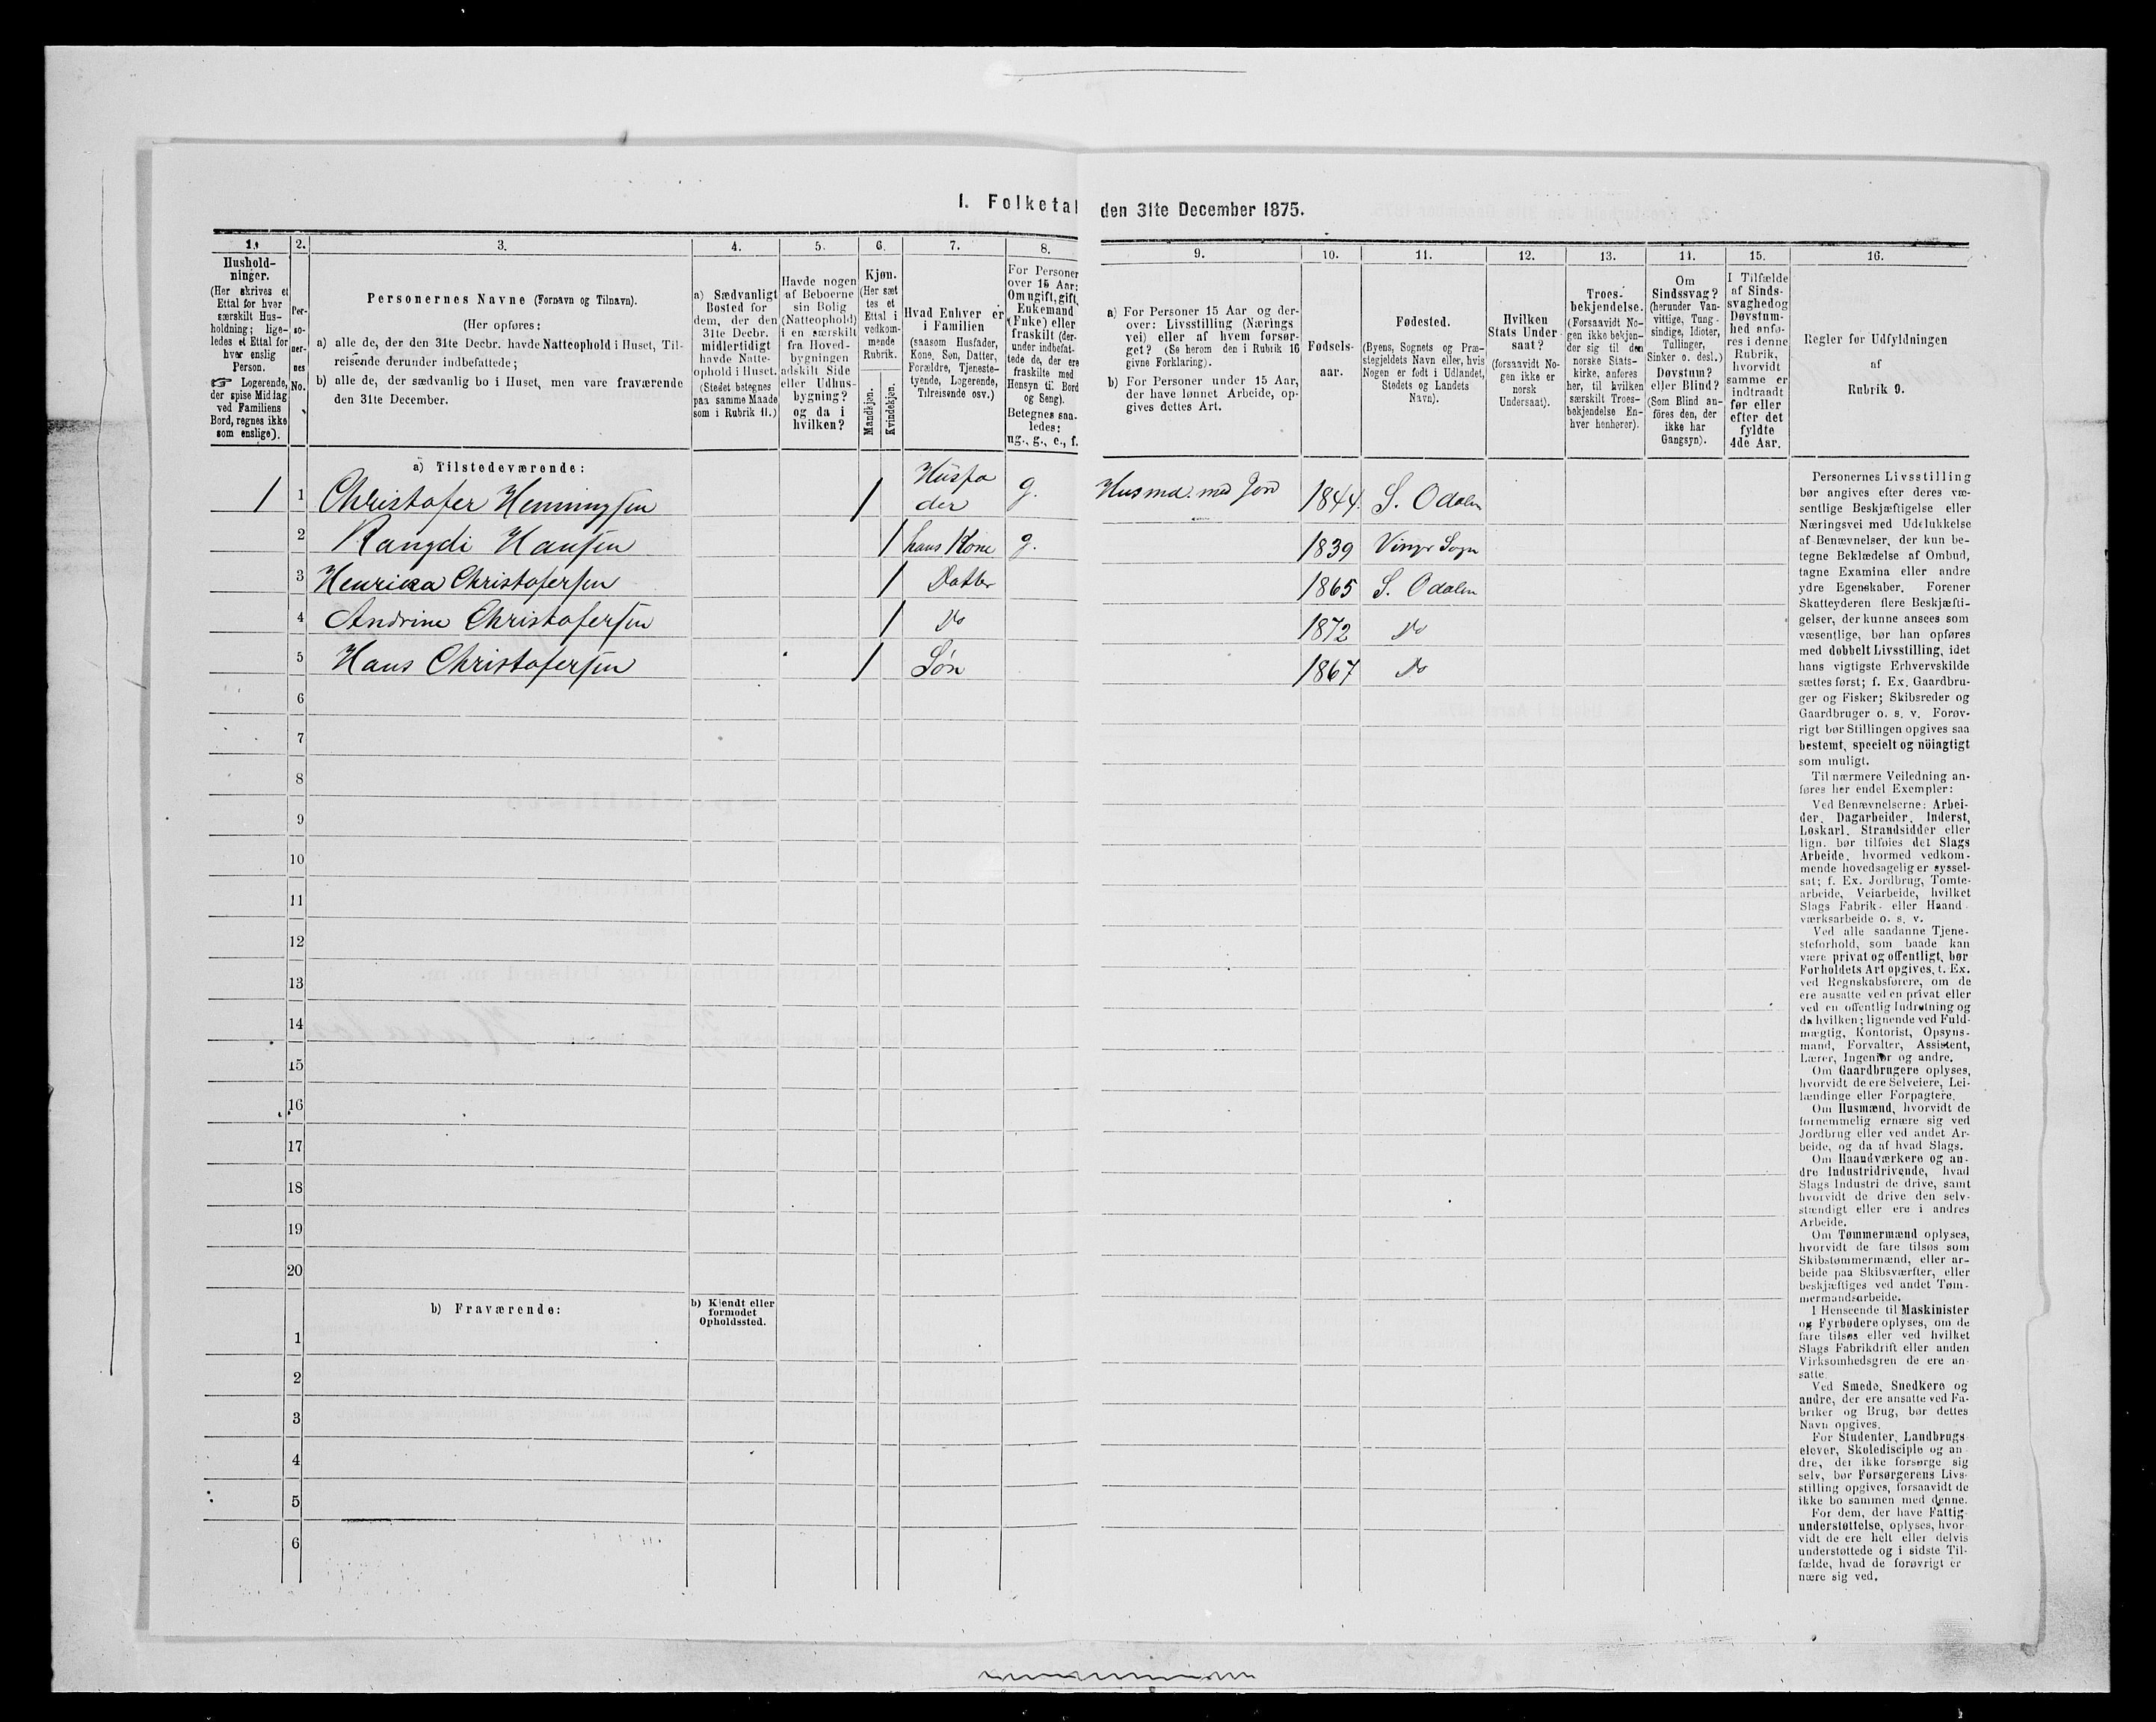 I. Folketal den 31te December 1875.
1. 2. 3. 4. 5. 6. 7. 8. 9. 10. 11. 12. 13. 14. 15. 16.
Hushold-
ninger.
(Her skrives et
Ettal for hver
særskilt Hus-
holdning; lige-
ledes et Ettal for
hver enslig
Person.
☞ Logerende,
der spise Middag
ved Familiens
Bord, regnes ikke
som enslige).
Per-
so-
ner-
nes
No.
Personernes Navne (Fornavn og Tilnavn).
(Her opføres:
a) alle de, der den 31te Decbr. havde Natteophold i Huset, Til-
reisende derunder indbefattede;
b) alle de, der sædvanlig bo i Huset, men vare fraværende
den 31te December.
a) Sædvanligt
Bosted for
dem, der den
31te Decbr.
midlertidigt
havde Natte-
ophold i Huset.
(Stedet betegnes
paa samme Maade
som i Rubrik 11.)
Havde nogen
af Beboerne
sin Bolig
(Natteophold)
i en særskilt
fra Hoved-
bygningen
adskilt Side
eller Udhus-
bygning?
og da i
hvilken?
Kjøn.
(Her sæt
tes et
Ettal i
vedkom-
mende
Rubrik.
Mandkjøn.
Kvindekjøn.
Hvad Enhver er
i Familien
(saasom Husfader,
Kone, Søn, Datter,
Forældre, Tjeneste-
tyende, Logerende,
Tilreisende osv.)
For Personer
over 15 Aar:
Om ugift, gift,
Enkemand
(Enke) eller
fraskilt (der-
under indbefat-
tede de, der ere
fraskilte med
Hensyn til Bord
og Seng).
Betegnes saa-
ledes:
ug., g., e., f.
a) For Personer 15 Aar og der-
over: Livsstilling (Nærings
vei) eller af hvem forsør-
get? (Se herom den i Rubrik 16
givne Forklaring).
b) For Personer under 15 Aar,
der have lønnet Arbeide, op-
gives dettes Art.
Fødsels-
aar.
Fødested.
(Byens, Sognets og Præ-
stegjeldets Navn eller, hvis
Nogen er født i Udlandet,
Stedets og Landets
Navn).
Hvilken
Stats Under
saat?
(forsaavidt No-
gen ikke er
norsk
Undersaat).
Troes-
bekjendelse.
(Forsaavidt No-
gen ikke bekjen-
der sig til den
norske Stats-
kirke, anføres
her, til hvilken
særskilt Troes-
bekjendelse En-
hver henhører).
Om
Sindssvag?
(herunder Van-
vittige, Tung-
sindige, Idioter,
Tullinger,
Sinker o. desl.)
Døvstum?
eller Blind?
(Som Blind an-
føres den, der
ikke har
Gangsyn).
I Tilfælde
af Sinds-
svaghed og
Døvstum-
hed anfø-
res i denne
Rubrik,
hvorvidt
samme er
indtraadt
før eller
efter det
fyldte
4de Aar.
Regler for Udfyldningen
af
Rubrik 9.
a) Tilstedeværende:
1 1 Christofer Henningsen 1 Husfa
der g. Husmd. med Jord 1844. S. Odalen
2 Rangdi Hansen 1 hans Kone g. 1839 Vinger Sogn
3 Henricca Christofersen 1 Datter 1865 S. Odalen
4 Andrine Christofersen 1 Do 1872 Do
5 Hans Christofersen 1 Søn 1867 Do
6
7
8
9
10
11
12
13
14
15
16
17
18
19
20
b) Fraværende:
b) Kjendt eller
formodet
Opholdssted.
1
2
3
4
5
6
Personernes Livsstilling
bør angives efter deres væ-
sentlige Beskjæftigelse eller
Næringsvei med Udelukkelse
af Benævnelser, der kun be-
tegne Beklædelse af Ombud,
tagne Examina eller andre
ydre Egenskaber. Forener
Skatteyderen flere Beskjæfti-
gelser, der kunne ansees som
væsentlige, bør han opføres
med dobbelt Livsstilling, idet
hans vigtigste Erhvervskilde
sættes først; f. Ex. Gaardbru-
ger og Fisker; Skibsreder og
Gaardbruger o. s. v. Forøv-
rigt bør Stillingen opgives saa
bestemt, specielt og nöiagtigt
som muligt.
Til nærmere Veiledning an-
føres her endel Exempler:
Ved Benævnelserne: Arbei-
der, Dagarbeider, Inderst,
Løskarl, Strandsidder eller
lign. bør tilføies det Slags
Arbeide, hvormed vedkom-
mende hovedsagelig er syssel-
sat; f. Ex. Jordbrug, Tomte-
arbeide, Veiarbeide, hvilket
Slags Fabrik- eller Haand-
værksarbeide o. s. v.
Ved alle saadanne Tjene-
steforhold, som baade kan
være privat og offentligt, bør
Forholdets Art opgives, t. Ex.
ved Regnskabsførere, om de
ere ansatte ved en privat eller
ved en offentlig Indretning og
da hvilken; lignende ved Fuld-
mægtig, Kontorist, Opsyns-
mand, Forvalter, Assistent,
Lærer, Ingeniør og andre.
Om Gaardbrugere oplyses,
hvorvidt de ere Selveiere, Lei-
lændinge eller Forpagtere.
Om Husmænd, hvorvidt de
fornemmelig ernære sig ved
Jordbrug eller ved andet Ar-
beide, og da af hvad Slags.
Om Haandværkere og an-
dre Industridrivende, hvad
Slags Industri de drive, samt
hvorvidt de drive den selv-
stændigt eller ere i andres
Arbeide.
Om Tømmermænd oplyses,
hvorvidt de fare tilsøs som
Skibstømmermænd, eller ar-
beide paa Skibsværfter, eller
beskjæftiges ved andet Tøm-
mermandsarbeide.
I Henseende til Maskinister
og Fyrbødere oplyses, om de
fare tilsøs eller ved hvilket
Slags Fabrikdrift eller anden
Virksomhedsgren de ere an-
satte.
Ved Smede, Snedkere og
andre, der ere ansatte ved Fa-
briker og Brug, bør dettes
Navn opgives.
For Studenter, Landbrugs-
elever, Skoledisciple og an-
dre, der ikke forsørge sig
selv, bør Forsørgerens Livs-
stilling opgives, forsaavidt de
ikke bo sammen med denne.
For dem, der have Fattig-
understøttelse, oplyses, hvor-
vidt de ere helt eller delvis
understøttede og i sidste Til-
fælde, hvad de forøvrigt er-
nære sig ved.